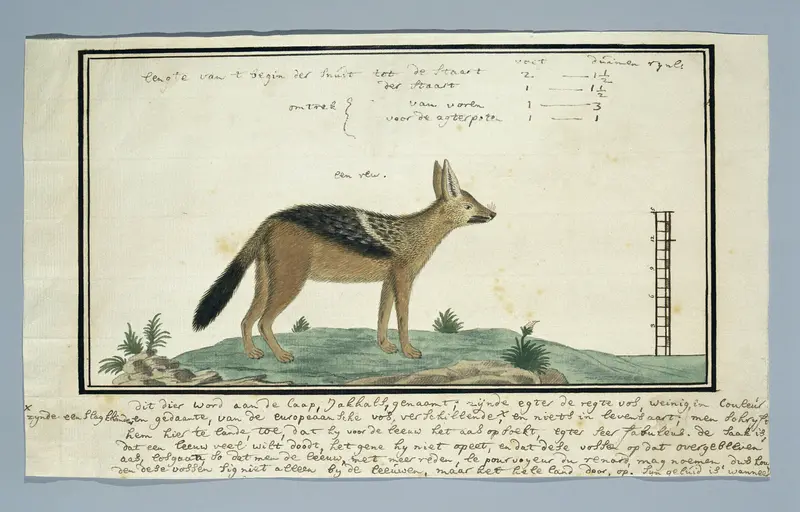 voet duimen rynl:
lengte van 't begin der snuit tot de staart 2 — 1 1/2
der staart 1 — 1 1/2
omtrek { van voren 1 — 3
voor de agterpoten 1 — 1
een reu.
12
9
6
3
dit dier word aan de Caap, Jakhals, genaamt: zijnde egter de regte vos, weinig in Couleur
x zynde een slag kleinder en gedaante, van de europeaansche vos, verschillende x en niets in levensaart; men schryft
hem hier te lande toe, dat hy voor de leeuw het aas opsoekt, egter seer fabuleus. de saak is,
dat een leeuw veel wilt doodt, het gene hy niet opeet, en dat dese vossen op dat overgebleven
aas, losgaan, so dat men de leeuw, met meer reden, le pourvoyeur du renard, mag noemen dus hou
den dese vossen sig niet alleen by de leeuwen, maar het hele land door, op. Syn geluid is wanneer